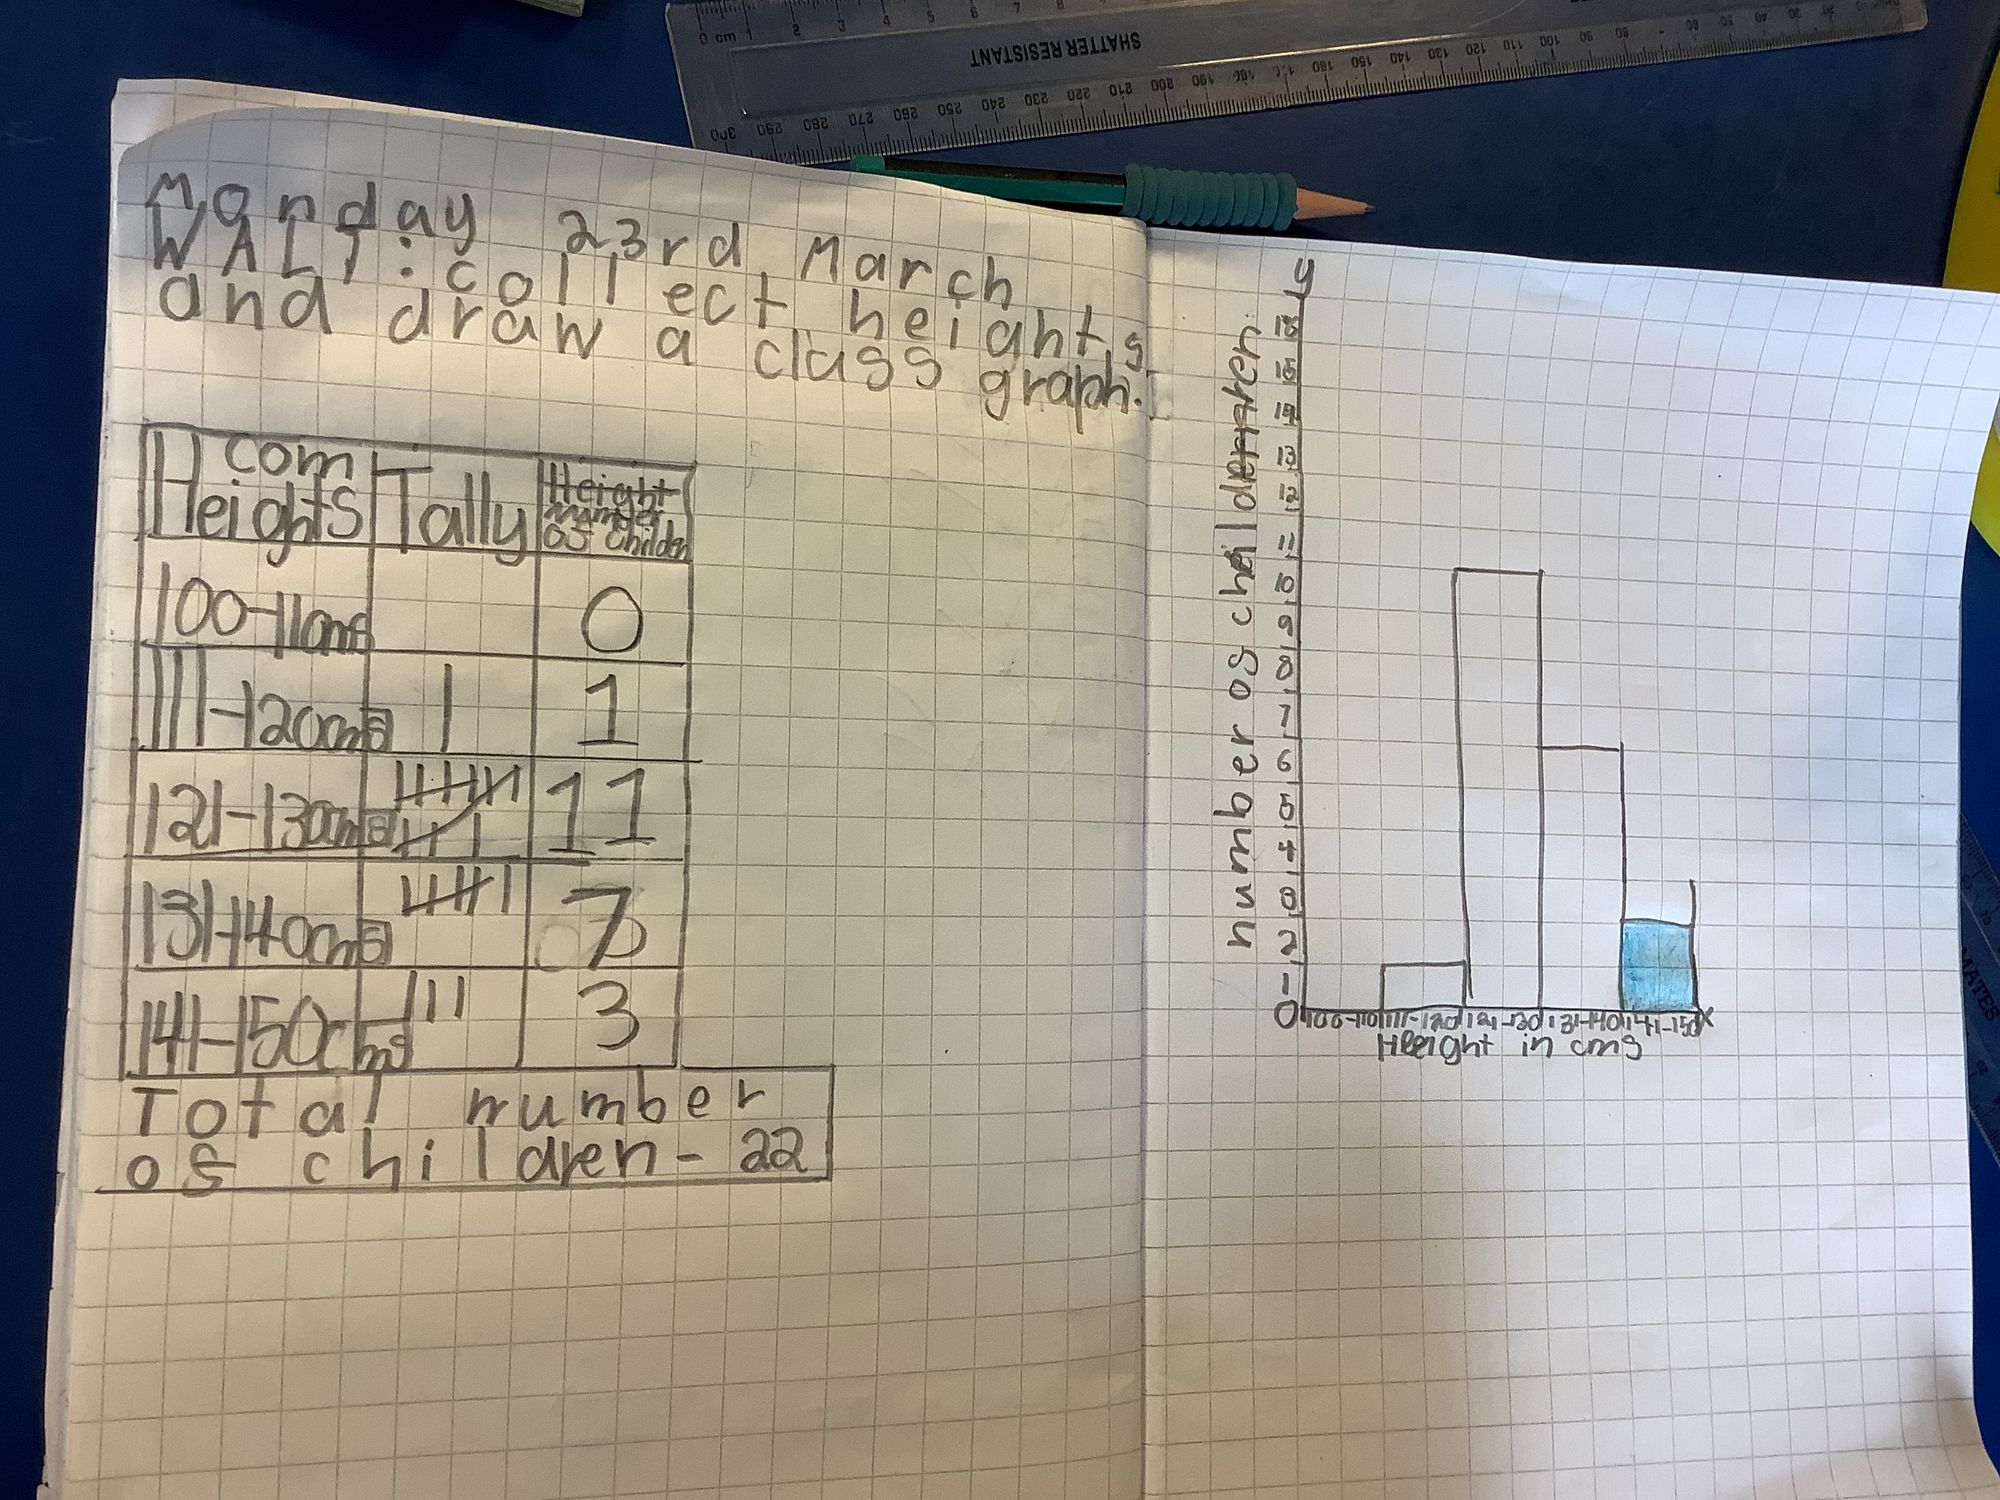 SHATTER RESISTANT
0 cm 1 2 3 4 5 6 7 8
300 290 280 270 260 250 240 230 220 210 200 190 180 170 160 150 140 130 120 110 100 90 80
Monday 23rd March
WALT: collect heights
and draw a class graph.
com
Heights Tally Height number of childen
100-110cms 0
111-120cms 1
121-130cms 11
131-140cms 7
141-150cms 3
Total number
of children - 22
y
16
15
14
13
12
11
10
9
8
7
6
5
4
3
2
1
0
number of children
100-110 111-120 121-130 131-140 141-150 x
Height in cms